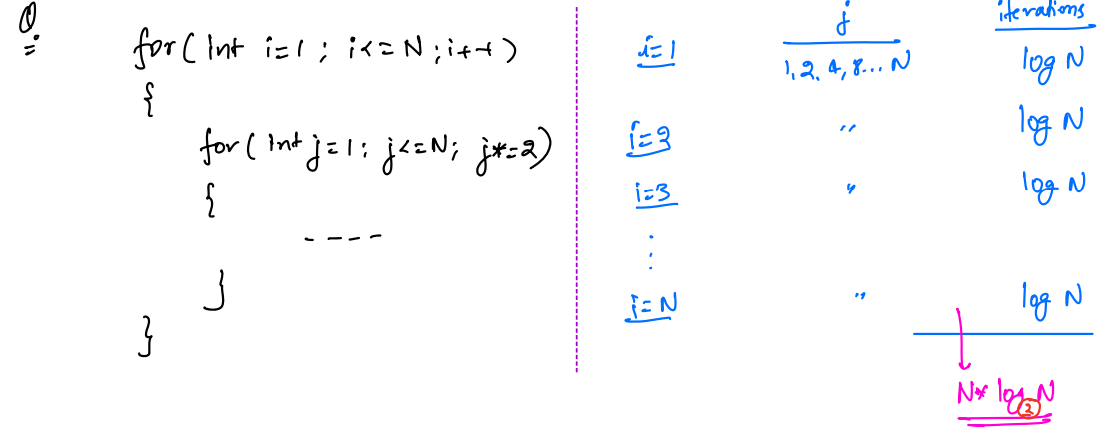 Q
for( int i=1 ; i<=N ; i++ )
{
for( int j=1 ; j<=N; j*=2)
{
----
}
}
j iterations
i=1 1, 2, 4, 8... N log N
i=2 " log N
i=3 " log N
⋮
i=N " log N
N* log₂N